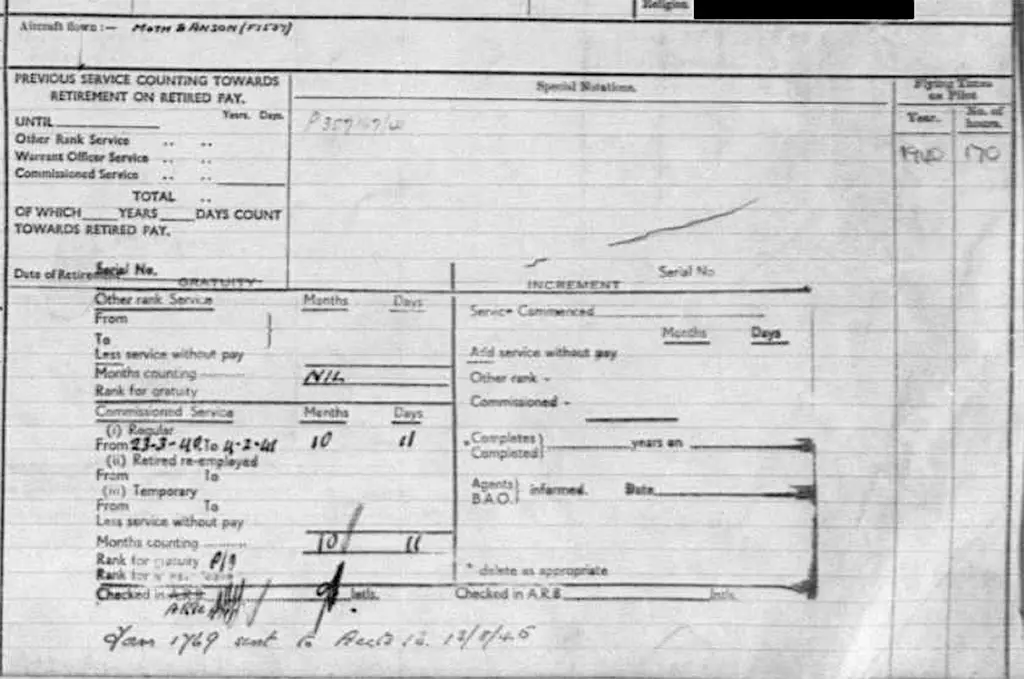 Religion.
Aircraft flown :— MOTH & ANSON
PREVIOUS SERVICE COUNTING TOWARDS
RETIREMENT ON RETIRED PAY.
Special Notations.
Flying Times
as Pilot
Years. Days.
Year.
No. of
hours.
UNTIL
Other Rank Service .. ..
1940 170
Warrant Officer Service .. ..
Commissioned Service .. ..
TOTAL ..
OF WHICH ____ YEARS ____ DAYS COUNT
TOWARDS RETIRED PAY.
Date of Retirement
Serial No.
GRATUITY
INCREMENT
Serial No
Other rank Service Months Days
From
To
Less service without pay
Months counting NIL
Rank for gratuity
Service Commenced
Months Days
Add service without pay
Other rank -
Commissioned -
Commissioned Service Months Days
(i) Regular
From 23-3-40 To 4-2-41 10 11
(ii) Retired re-employed
From To
(iii) Temporary
From To
Less service without pay
Months counting 10 11
Rank for gratuity P/O
Rank for
Checked in A.R.B. Intls.
* Completes
Completed
years on
Agents
B.A.O.
informed. Date
* delete as appropriate
Checked in A.R.B. Intls.
1769 sent to